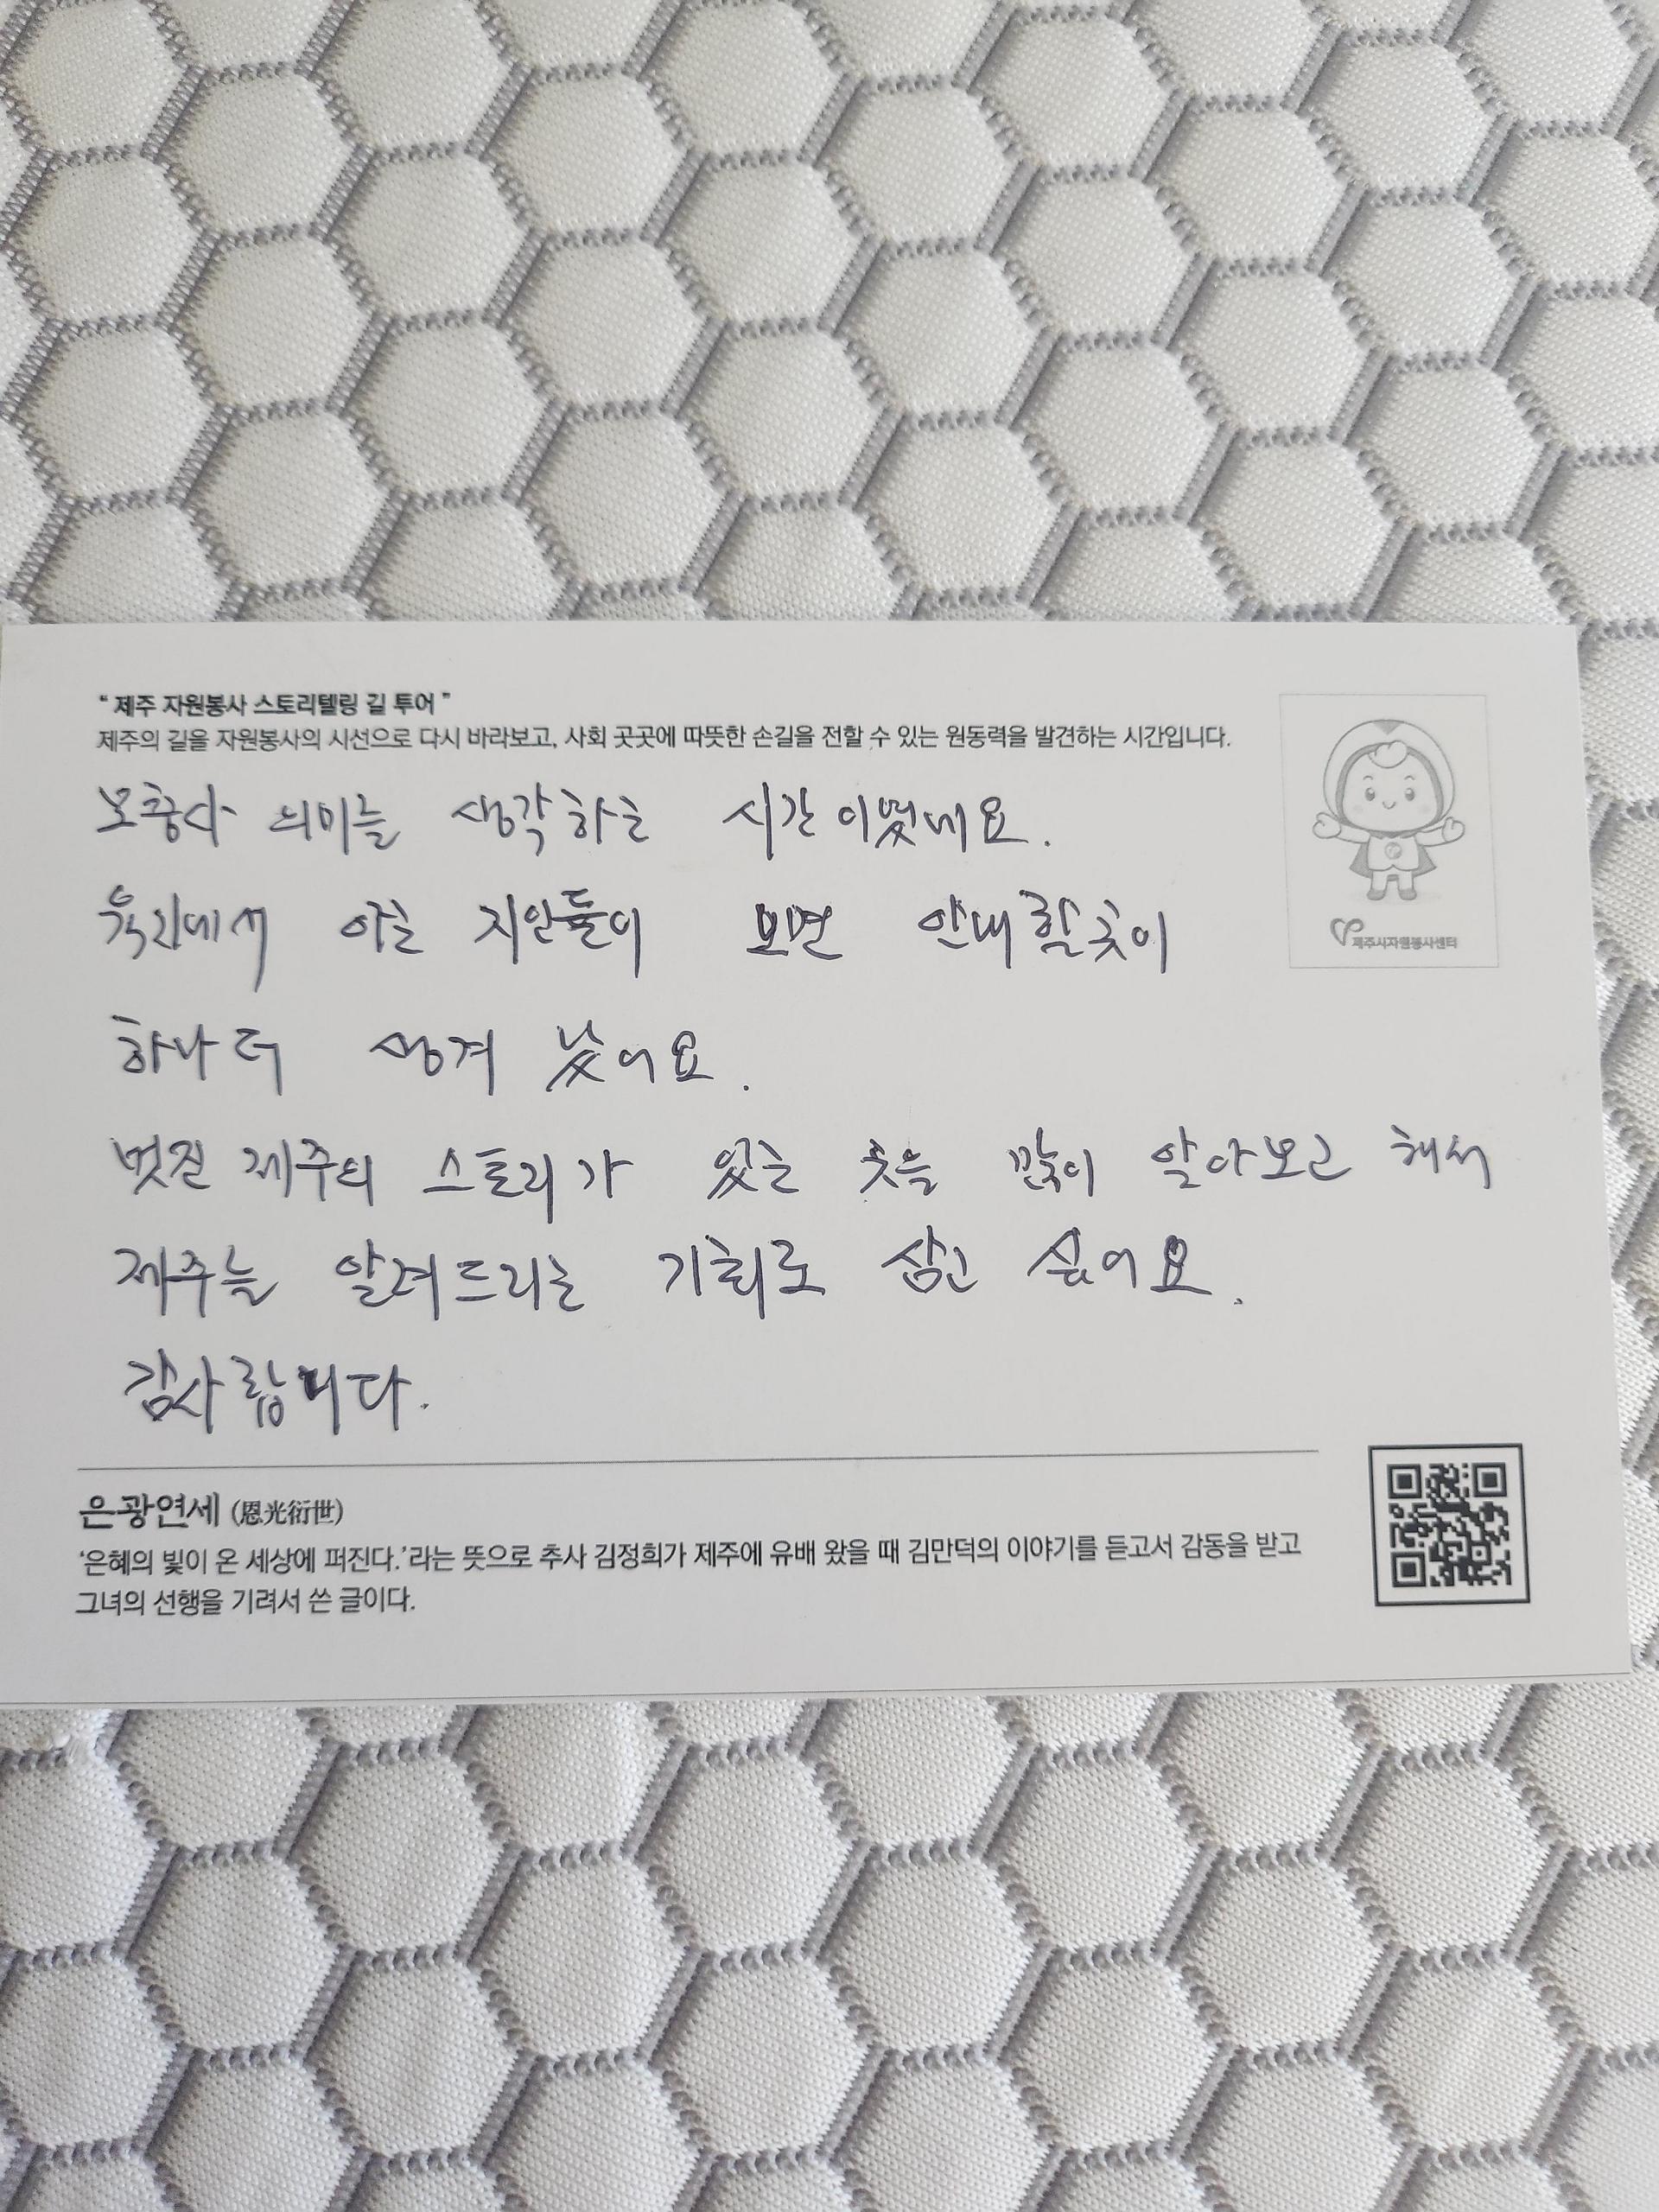 “ 제주 자원봉사 스토리텔링 길 투어 ”
제주의 길을 자원봉사의 시선으로 다시 바라보고, 사회 곳곳에 따뜻한 손길을 전할 수 있는 원동력을 발견하는 시간입니다.
의미를 생각하는 시간이었네요.
육지에서 아는 지인들이 오면 안내할곳이
하나 더 생겨 났어요.
멋진 제주의 스토리가 있는 곳을 많이 알아보고 해서
제주를 알려드리는 기회로 삼고 싶어요.
감사합니다.
제주시자원봉사센터
은광연세 (恩光衍世)
‘은혜의 빛이 온 세상에 퍼진다.’라는 뜻으로 추사 김정희가 제주에 유배 왔을 때 김만덕의 이야기를 듣고서 감동을 받고
그녀의 선행을 기려서 쓴 글이다.